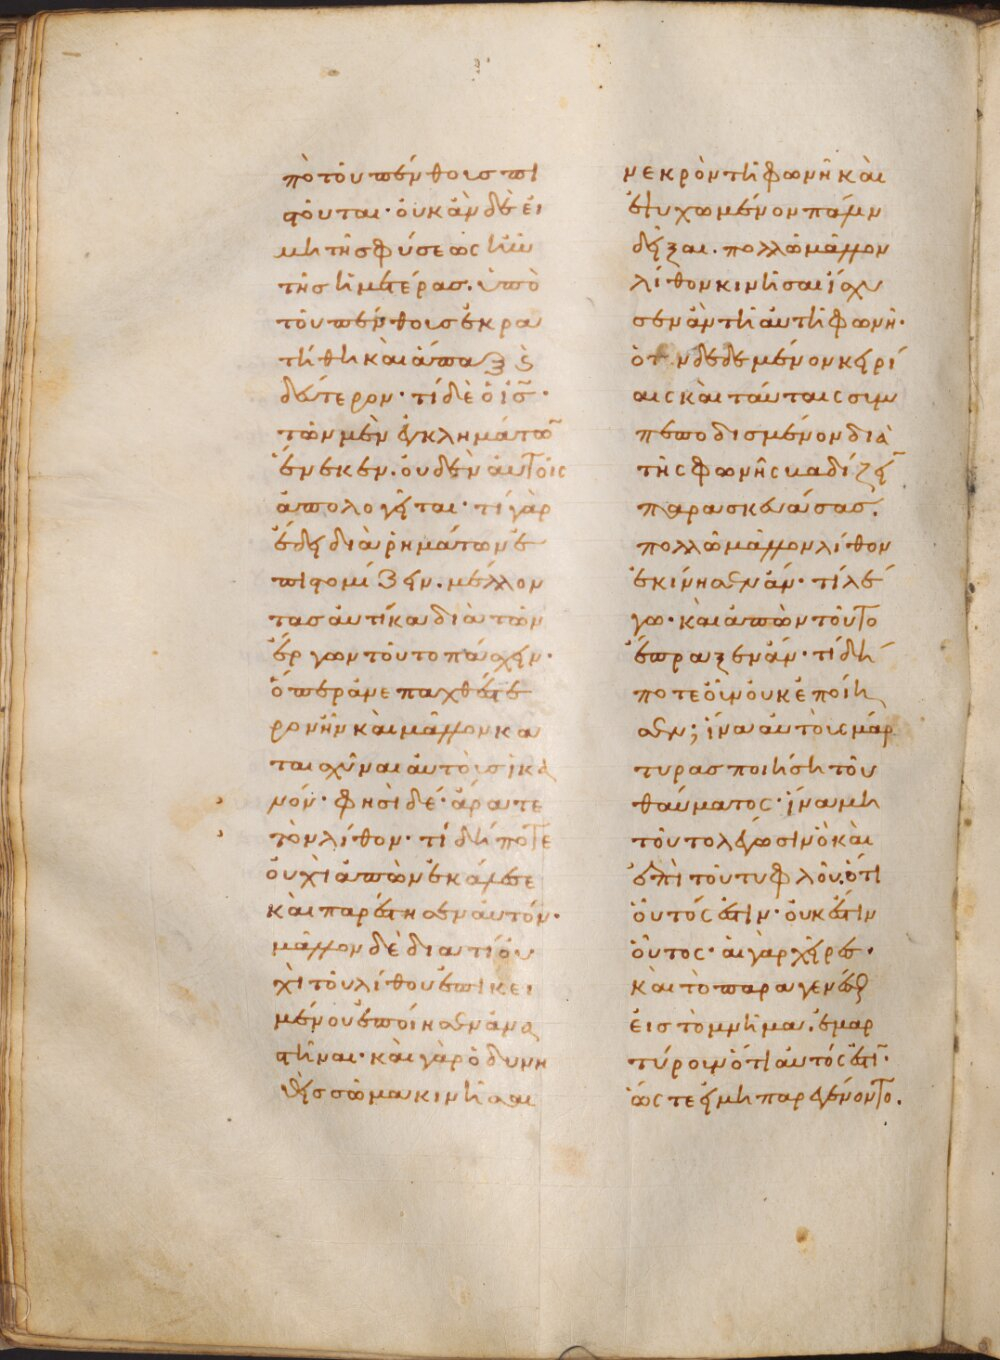 πὸ τοῦ πένθους πι
στοῦται· οὐκ ἂν δὲ εἰ
μὴ τῆς φύσεως ἦν
τῆς ἡμετέρας. ὑπὸ
τοῦ πένθους ἐκρα
τήθη καὶ ἅπαξ καὶ
δεύτερον· τί δὲ ὁ ἰς̅·
τῶν μὲν ἐγκλημάτω̅
ἕνεκεν. οὐδὲν αὐτοῖς
ἀπολογεῖται· τί γὰρ
ἔδει διὰ ῥημάτων ἐ
πιστομίζειν. μέλλον
τας αὐτίκα διὰ τῶν
ἔργων τοῦτο πάσχειν·
ὅπερ ἀνεπαχθέστε
ρον ἦν καὶ μᾶλλον κα
ταισχῦναι αὐτοὺς ἱκα
νόν· φησὶ δέ· ἄρατε
τὸν λίθον· τί δήποτε
οὐχὶ ἀπὼν ἐκάλεσε
καὶ παρέστησεν αὐτόν·
μᾶλλον δὲ διατί οὐ
χὶ τοῦ λίθου ἐπικει
μένου ἐποίησεν ἀνα
στῆναι· καὶ γὰρ ὁ δυνη
θεὶς σῶμα κινῆσαι
νεκρὸν τῆ φωνῆ καὶ
ἐψυχωμένον πάλιν
δεῖξαι. πολλῶ μᾶλλον
λίθον κινῆσαι ἴσχυ
σεν ἂν τῆ αὐτῆ φωνῆ·
ὁ τὸν δεδεμένον κειρί
αις καὶ ταύταις συμ
πεποδισμένον διὰ
τῆς φωνῆς βαδίζει̅
παρασκευάσας.
πολλῶ μᾶλλον λίθον
ἐκίνησεν ἄν· τί λέ
γω· καὶ ἀπὼν τοῦτο
ἔπραξεν ἄν· τί δή
ποτε οὖν οὐκ ἐποίη
σεν; ἵνα αὐτοὺς μάρ
τυρας ποιήση τοῦ
θαύματος· ἵνα μὴ
τοῦτο λέγωσιν ὃ καὶ
ἐπὶ τοῦ τυφλοῦ. ὅτι
οὗτός ἐστιν· οὐκ ἔστιν
οὗτος· αἱ γὰρ χεῖρες·
καὶ τὸ παραγενέσθαι
εἰς τὸ μνῆμα. ἐμαρ
τύρουν ὅτι αὐτός ἐστι̅·
ὥστε εἰ μὴ παρεγένοντο.